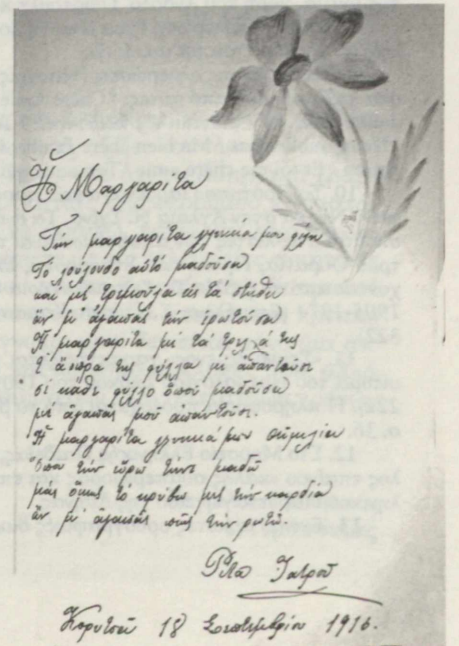 Ἡ Μαργαρίτα
Τὴν μαργαρίτα γλυκειά μου φίλη
Τὸ λούλουδο αὐτὸ μαδοῦσα
καὶ μὲ τρεμούλα εἰς τὰ στήθη
ἂν μ' ἀγαπᾶς τὴν ἐρωτοῦσα
Ἡ μαργαρίτα μὲ τὰ τρελλά της
τ' ἄσπρα της φύλλα μὲ ἀπαντοῦσε
σὲ κάθε φύλλο ὁποῦ μαδοῦσα
μὲ ἀγαπᾶς μοῦ ἀπαντοῦσε.
Ἡ μαργαρίτα γλυκειά μου
τὴν ὥρα μαδῶ
μὰ ὅμως τὸ κρύβω μὲς τὴν καρδιά
ἂν μ' ἀγαπᾶς πῶς τὴν ρωτῶ.
Ρίτα Ἰατροῦ
Κορυτσᾶ 18 Σεπτεμβρίου 1916.